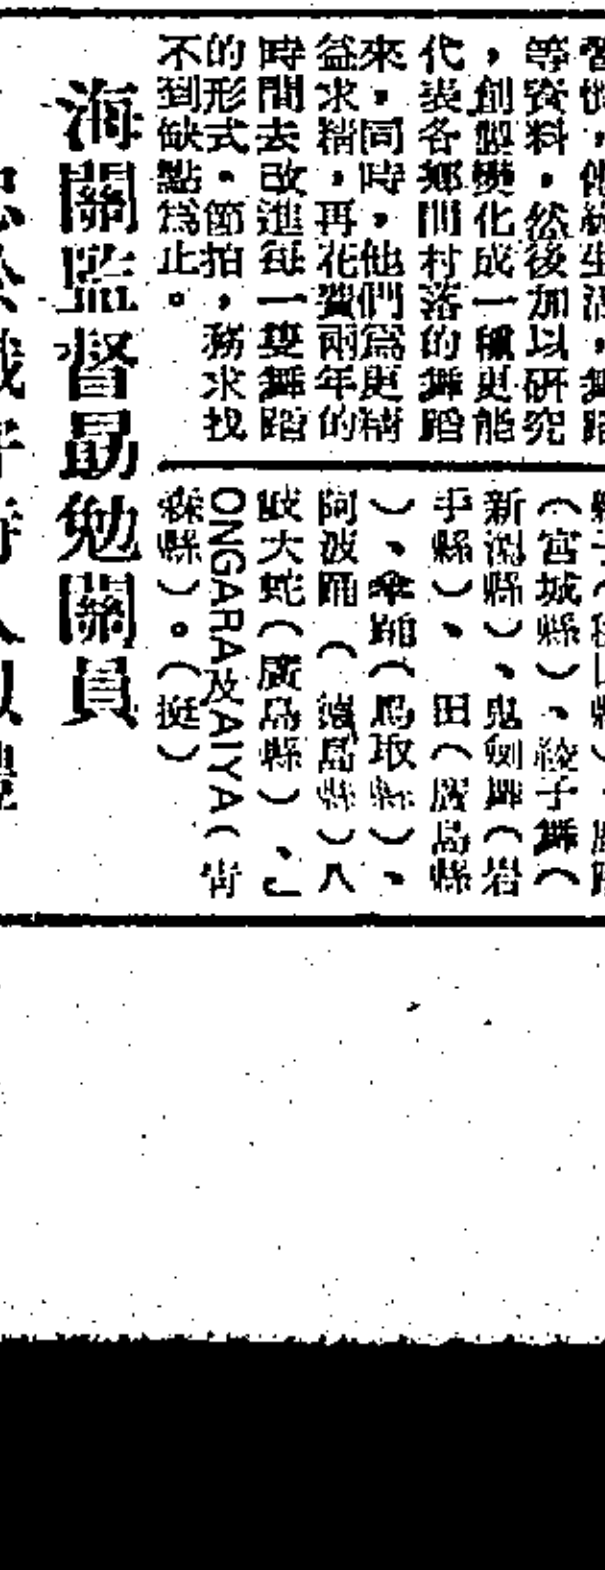 等資料，然後加以研究
，創製變化成一種更能
代表各鄉間村落的舞蹈
來，同時，他們爲更精
益求精，再花費兩年的
時間去改進每一隻舞蹈
的形式。節拍，務求找
不到缺點爲止。
（宮城縣）、綾子舞（
新潟縣）、鬼劍舞（岩
手縣）、田（廣島縣
）、傘踊（鳥取縣）、
阿波踊（德島縣）八
岐大蛇（廣島縣）、
ONGARA及AIYA（青
森縣）。（挺）
海關監督勗勉關員